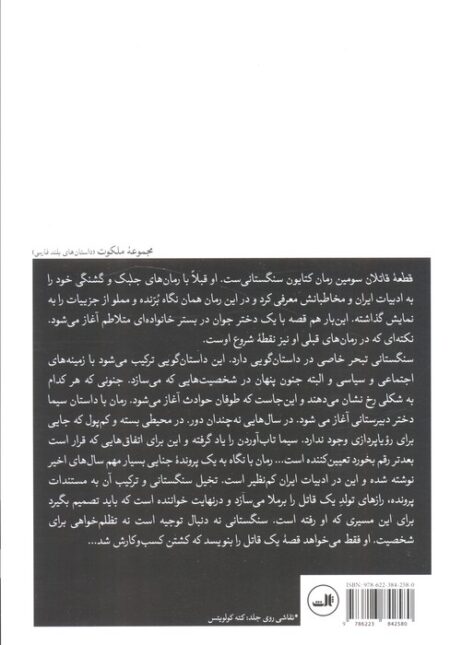 مجموعهٔ ملکوت (داستان‌های بلند فارسی)
قطعهٔ قاتلان سومین رمان کتایون سنگستانی‌ست. او قبلاً با رمان‌های جلبک و گشنگی خود را
به ادبیات ایران و مخاطبانش معرفی کرد و در این رمان همان نگاه بُرّنده و مملو از جزییات را به
نمایش گذاشته. این‌بار هم قصه با یک دختر جوان در بستر خانواده‌ای متلاطم آغاز می‌شود.
نکته‌ای که در رمان‌های قبلی او نیز نقطهٔ شروع اوست.
سنگستانی تبحر خاصی در داستان‌گویی دارد. این داستان‌گویی ترکیب می‌شود با زمینه‌های
اجتماعی و سیاسی و البته جنون پنهان در شخصیت‌هایی که می‌سازد. جنونی که هر کدام به
شکلی رخ نشان می‌دهند و این‌جاست که طوفان حوادث آغاز می‌شود. رمان با داستان سیما
دختر دبیرستانی آغاز می شود. در سال‌هایی نه‌چندان دور. در محیطی بسته و کم‌پول که جایی
برای رؤیاپردازی وجود ندارد. سیما تاب‌آوردن را یاد گرفته و این برای اتفاق‌هایی که قرار است
بعدتر رقم بخورد تعیین‌کننده است... رمان با نگاه به یک پروندهٔ جنایی بسیار مهم سال‌های اخیر
نوشته شده و این در ادبیات ایران کم‌نظیر است. تخیل سنگستانی و ترکیب آن به مستندات
پرونده، رازهای تولدِ یک قاتل را برملا می‌سازد و درنهایت خواننده است که باید تصمیم بگیرد
برای این مسیری که او رفته است. سنگستانی نه دنبال توجیه است نه تظلم‌خواهی برای
شخصیت. او فقط می‌خواهد قصهٔ یک قاتل را بنویسد که کشتن کسب‌وکارش شد...
ISBN: 978-622-384-258-0
ثالث
9 786223 842580
*نقاشی روی جلد: کته کولویتس